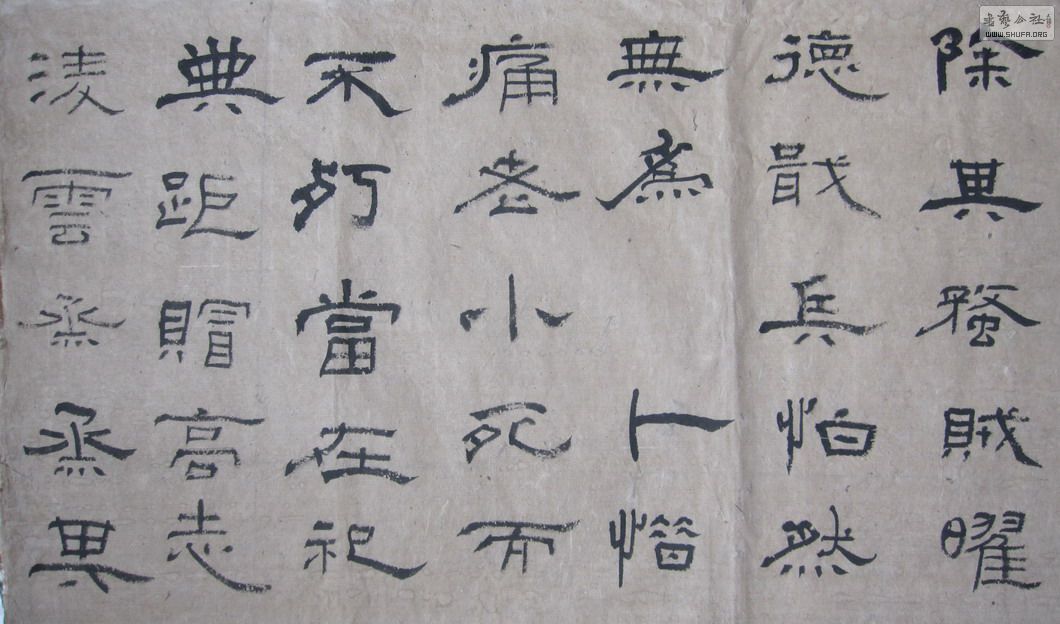 除其蝥賊曜
德戢兵怕然
無爲卜憯
痛老小死而
不朽當在祀
典距賵高志
淩雲烝烝其
書藝公社
WWW.SHUFA.ORG